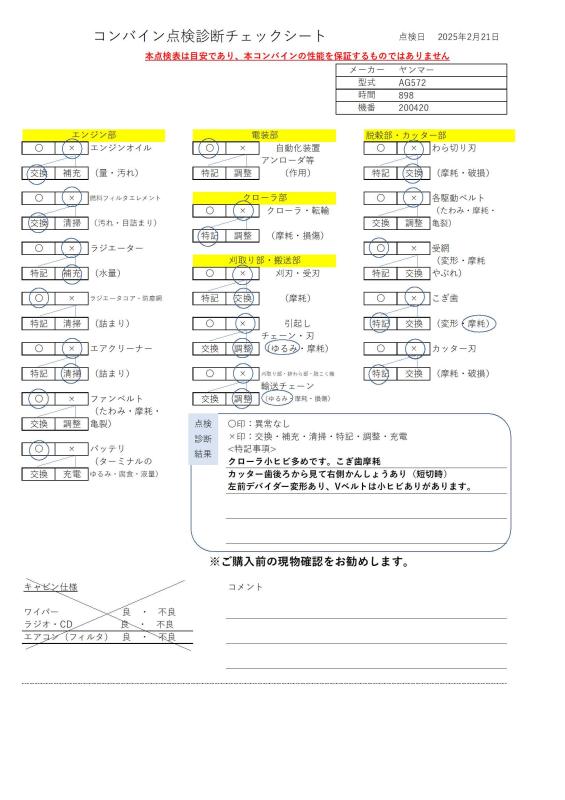 コンバイン点検診断チェックシート
点検日 2025年2月21日
本点検表は目安であり、本コンバインの性能を保証するものではありません
メーカー ヤンマー
型式 AG572
時間 898
機番 200420
エンジン部
〇 × エンジンオイル
交換 補充 (量・汚れ)
〇 × 燃料フィルタエレメント
交換 清掃 (汚れ・目詰まり)
〇 × ラジエーター
特記 補充 (水量)
〇 × ラジエータコア・防塵網
特記 清掃 (詰まり)
〇 × エアクリーナー
特記 清掃 (詰まり)
〇 × ファンベルト
(たわみ・摩耗・
交換 調整 亀裂)
〇 × バッテリ
(ターミナルの
交換 充電 ゆるみ・腐食・液量)
電装部
〇 × 自動化装置
アンローダ等
特記 調整 (作用)
クローラ部
〇 × クローラ・転輪
特記 調整 (摩耗・損傷)
刈取り部・搬送部
〇 × 刈刃・受刃
特記 交換 (摩耗)
〇 × 引起し
チェーン・刃
交換 調整 (ゆるみ・摩耗)
〇 × 刈取り部・排わら部・脱こく機
輸送チェーン
交換 調整 (ゆるみ・摩耗・損傷)
脱穀部・カッター部
〇 × わら切り刃
特記 交換 (摩耗・破損)
〇 × 各駆動ベルト
(たわみ・摩耗・
交換 調整 亀裂)
〇 × 受網
(変形・摩耗
特記 交換 やぶれ)
〇 × こぎ歯
特記 交換 (変形・摩耗)
〇 × カッター刃
特記 交換 (摩耗・破損)
点検
診断
結果
〇印：異常なし
×印：交換・補充・清掃・特記・調整・充電
<特記事項>
クローラ小ヒビ多めです。こぎ歯摩耗
カッター歯後ろから見て右側かんしょうあり（短切時）
左前デバイダー変形あり、Vベルトは小ヒビありがあります。
※ご購入前の現物確認をお勧めします。
キャビン仕様
ワイパー 良 ・ 不良
ラジオ・CD 良 ・ 不良
エアコン（フィルタ） 良 ・ 不良
コメント